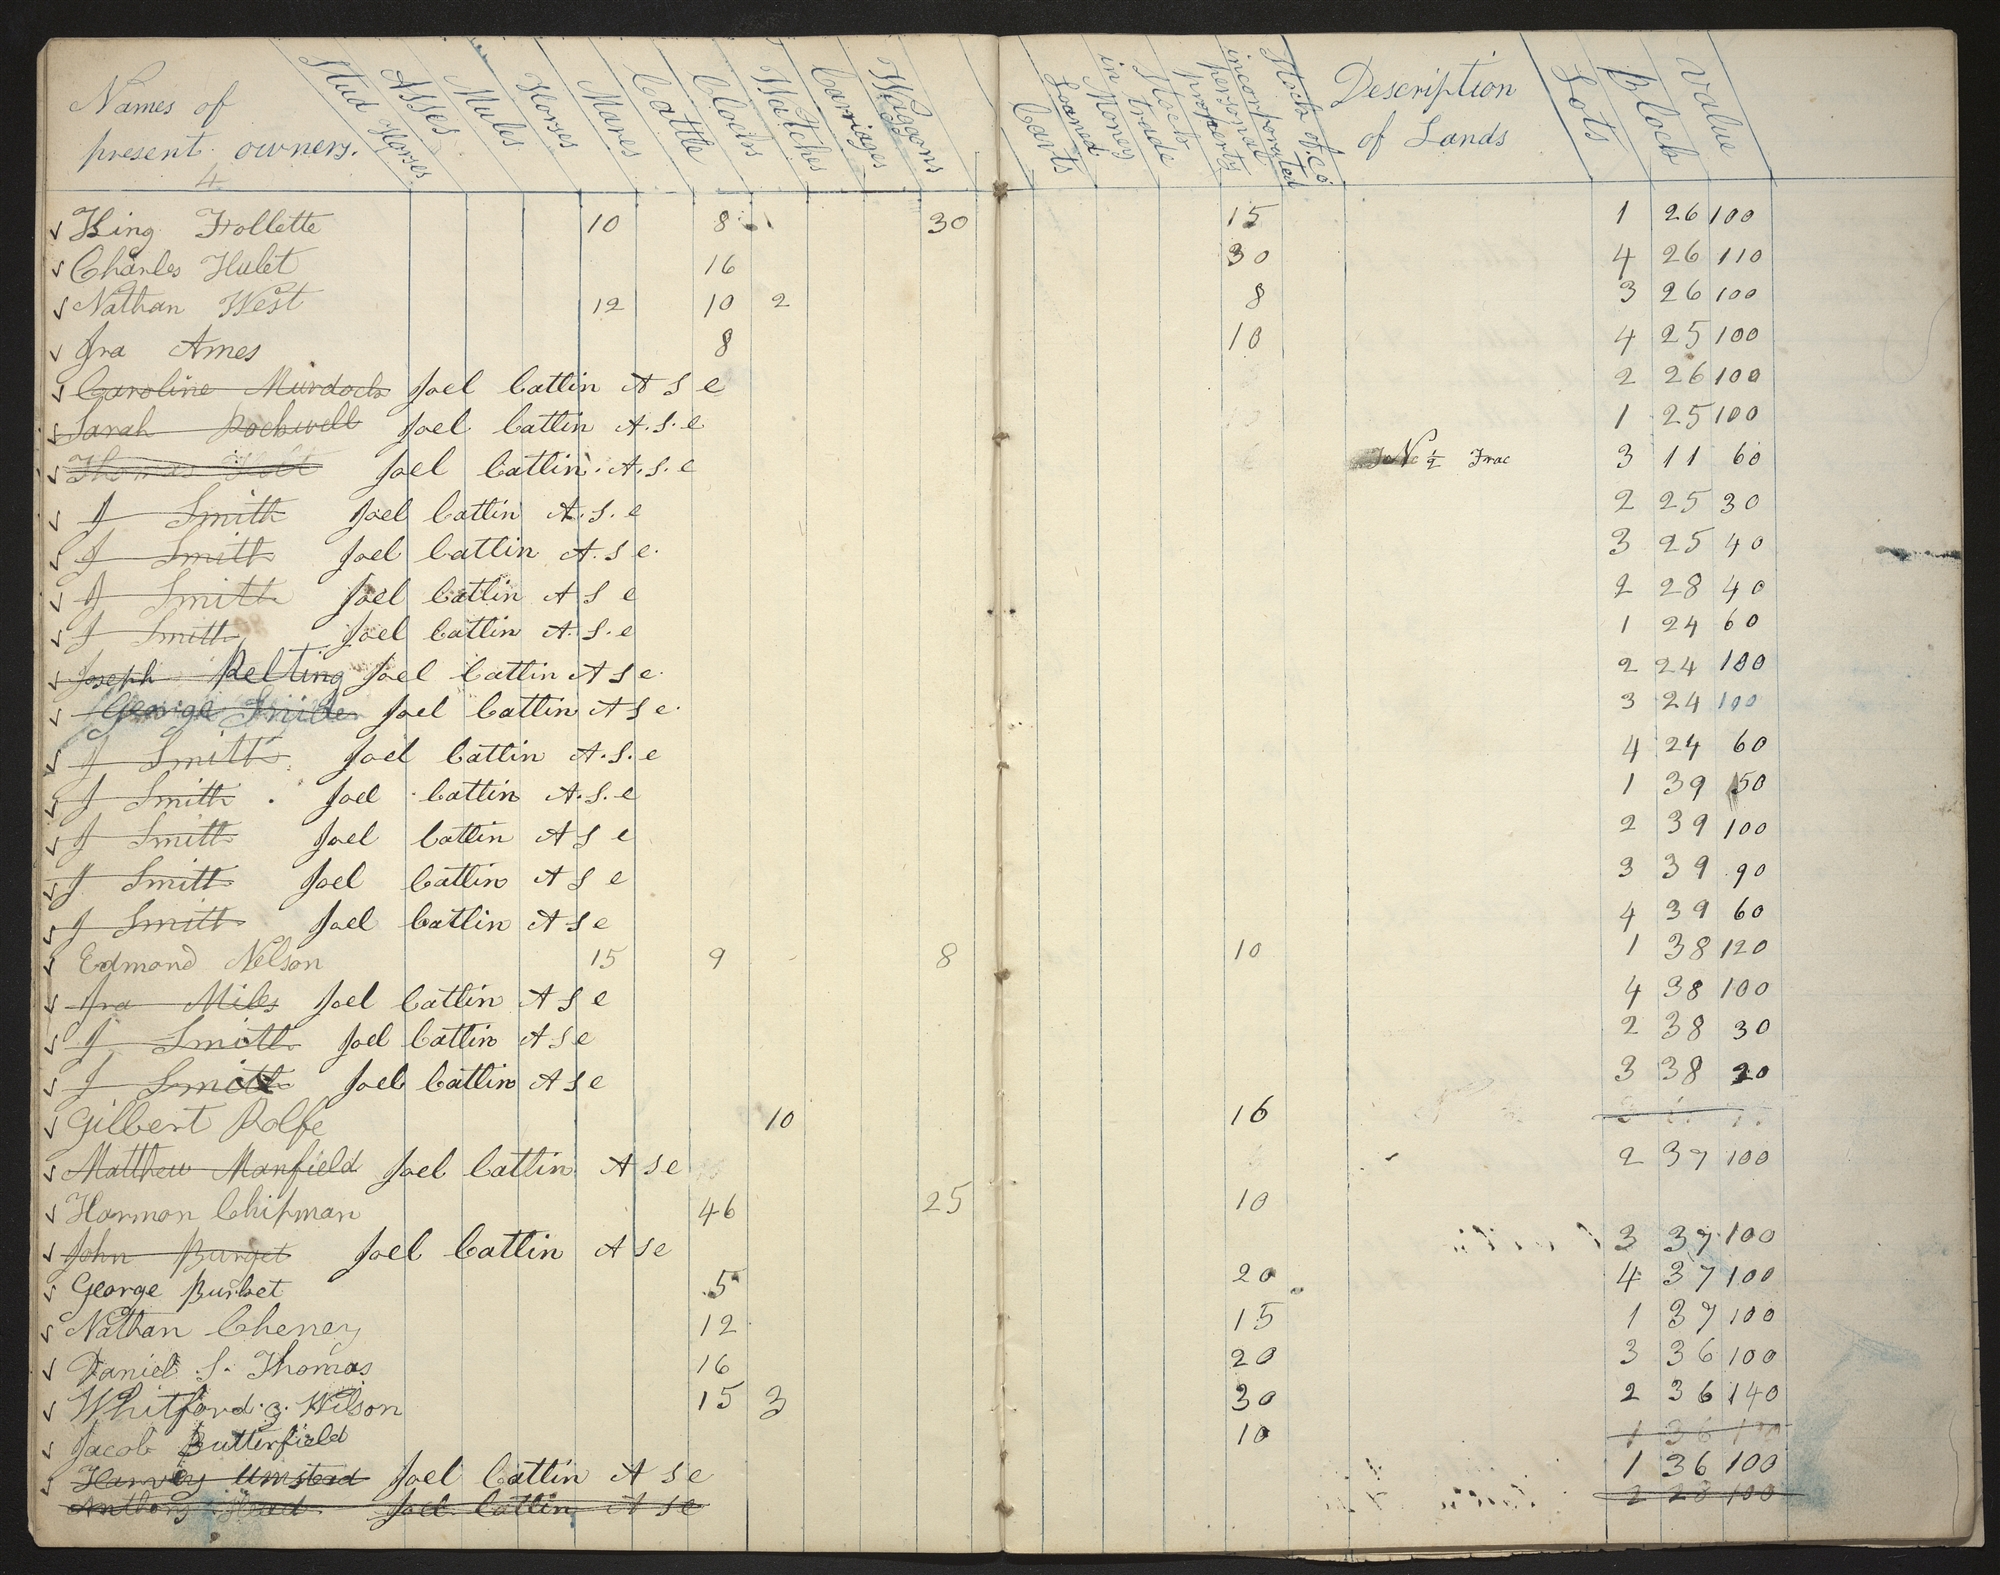 Names of present owners. Stud Horses Asses Mules Horses Mares Cattle Clocks Watches Carriages Waggons Carts Loaned Money in Stock trade personal property Stock of Co incorporated Description of Lands Lots Block Value
4
King Follette 10 8 30 15 1 26 100
Charles Hulet 16 30 4 26 110
Nathan West 12 10 2 8 3 26 100
Ira Ames 8 10 4 25 100
Caroline Murdock Joel Catlin A S e 2 26 100
Sarah Rockwell Joel Catlin A. S. e 1 25 100
Thomas Joel Catlin. A. S. e Ne ½ Frac 3 11 60
J Smith Joel Catlin A. S. e 2 25 30
J Smith Joel Catlin A. S e. 3 25 40
J Smith Joel Catlin A S e 2 28 40
J Smith Joel Catlin A. S. e 1 24 60
Joseph Kelting Joel Catlin A S e. 2 24 100
George Snider Joel Catlin A S e. 3 24 100
J Smith Joel Catlin A. S. e 4 24 60
J Smith Joel Catlin A. S. e 1 39 50
J Smith Joel Catlin A S e 2 39 100
J Smith Joel Catlin A S e 3 39 90
J Smith Joel Catlin A S e 4 39 60
Edmond Nelson 15 9 8 10 1 38 120
Ira Miles Joel Catlin A S e 4 38 100
J Smith Joel Catlin A S e 2 38 30
J Smith Joel Catlin A S e 3 38 20
Gilbert Rolfe 10 16
Matthew Manfield Joel Catlin A S e 2 37 100
Harmon Chipman 46 25 10
John Burget Joel Catlin A S e 3 37 100
George Burket 5 20 4 37 100
Nathan Cheney 12 15 1 37 100
Daniel S. Thomas 16 20 3 36 100
Whitford. G. Wilson 15 3 30 2 36 140
Jacob Butterfield 10 1 36 100
Harvey Umstead Joel Catlin A S e 1 36 100
Anthony Head Joel Catlin A S e 2 28 100